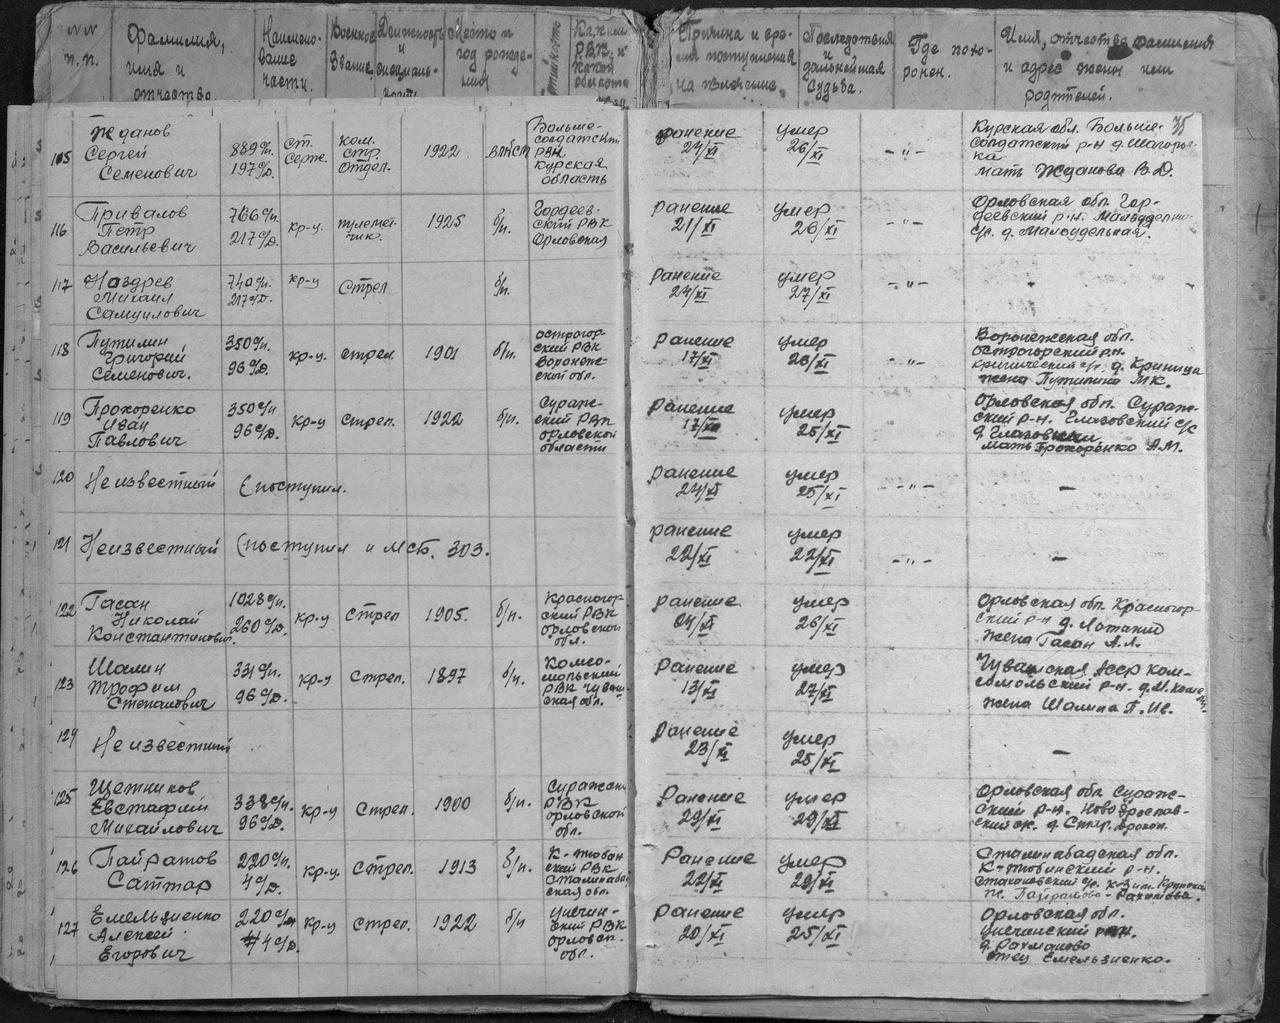 NN п.п.
Фамилия, имя и отчество
Наимено-вание части.
Военное звание.
Должность и специаль-ность
Место и год рожде-ния
Каким РВК, и какой области
Причина и вре-мя поступления на лечение.
Последствия и дальнейшая судьба.
Где похо-ронен.
Имя, отчество фамилия и адрес жены или родителей.
35
Жданов
Сергей
Семенович
889 с/п.
197 с/д.
ст.
серж.
ком.
стр.
отдел.
1922
ВЛКСМ
Больше-
солдатский
РВК
Курская
область
ранение
24/XI
умер
26/XI
- " -
Курская обл. Больше-
солдатский р-н д.
мать Жданова В.Д.
116
Привалов
Петр
Васильевич
766 с/п.
217 с/д.
кр-ц
пулемет-
чик.
1925
б/п.
Гордеев-
ский РВК
Орловская
ранение
21/XI
умер
26/XI
- " -
Орловская обл. Гор-
деевский р-н.
с/с. д. Малоудельная.
117
Ноздрев
Михаил
Самуилович
740 с/п.
217 с/д.
кр-ц
Стрел
б/п.
ранение
24/XI
умер
27/XI
- " -
118
Путилин
Григорий
Семенович.
350 с/п.
96 с/д.
кр-ц.
стрел.
1901
б/п.
острогор-
ский РВК
Воронеж-
ской обл.
ранение
17/XI
умер
26/XI
- " -
Воронежская обл.
острогорский р-н.
с/с. д. Криница
жена Путилина М.К.
119
Прохоренко
Иван
Павлович
350 с/п
96 с/д.
кр-ц
Стрел.
1922
б/п.
Сураж-
ский РВК
орловской
области
ранение
17/XI
умер
25/XI
Орловская обл. Сураж-
ский р-н. Глазовский с/с
д.
мать Прохоренко А.М.
120
Неизвестный (поступил.
ранение
24/XI
умер
25/XI
- " -
—
121
Неизвестный (поступил и МСБ. 303.
ранение
22/XI
умер
22/XI
- " -
—
122
Гасан
Николай
Константинович.
1028 с/п.
260 с/д.
кр-ц
Стрел
1905.
б/п.
Красногор-
ский РВК
орловской
обл.
ранение
24/XI
умер
26/XI
Орловская обл. Красногор-
ский р-н д.
жена Гасан А.А.
123
Шалин
Трофим
Степанович
331 с/п.
96 с/д.
кр-ц
Стрел.
1897
б/п.
Комсо-
мольский
РВК Чуваш-
ская обл.
Ранение
13/XI
умер
27/XI
Чувашская АССР ком-
сомольский р-н.
жена Шалина П. Ив.
124
Неизвестный
Ранение
23/XI
умер
25/XI
—
125
Щетников
Евстафий
Михайлович
338 с/п.
96 с/д.
кр-ц
Стрел.
1900
б/п.
Суражский
РВК
орловской
обл.
Ранение
29/XI
умер
29/XI
Орловская обл Сураж-
ский р-н.
д. Стар.
126
Пайратов
Саттар
220 с/п.
4 с/д.
кр-ц.
Стрел.
1913
б/п
К-тюбин
ский РВК
Сталинабад
ская обл.
Ранение
22/XI
умер
29/XI
Сталинабадская обл.
К-тюбинский р-н.
127
Емельзиенко
Алексей
Егорович
220 с/п
4 с/д.
кр-ц
Стрел.
1922
б/п
унечин-
ский РВК
орловск.
обл.
Ранение
20/XI
умер
25/XI
Орловская обл.
унечанский р-н.
д. Рахманово
отец Емельзиенко.